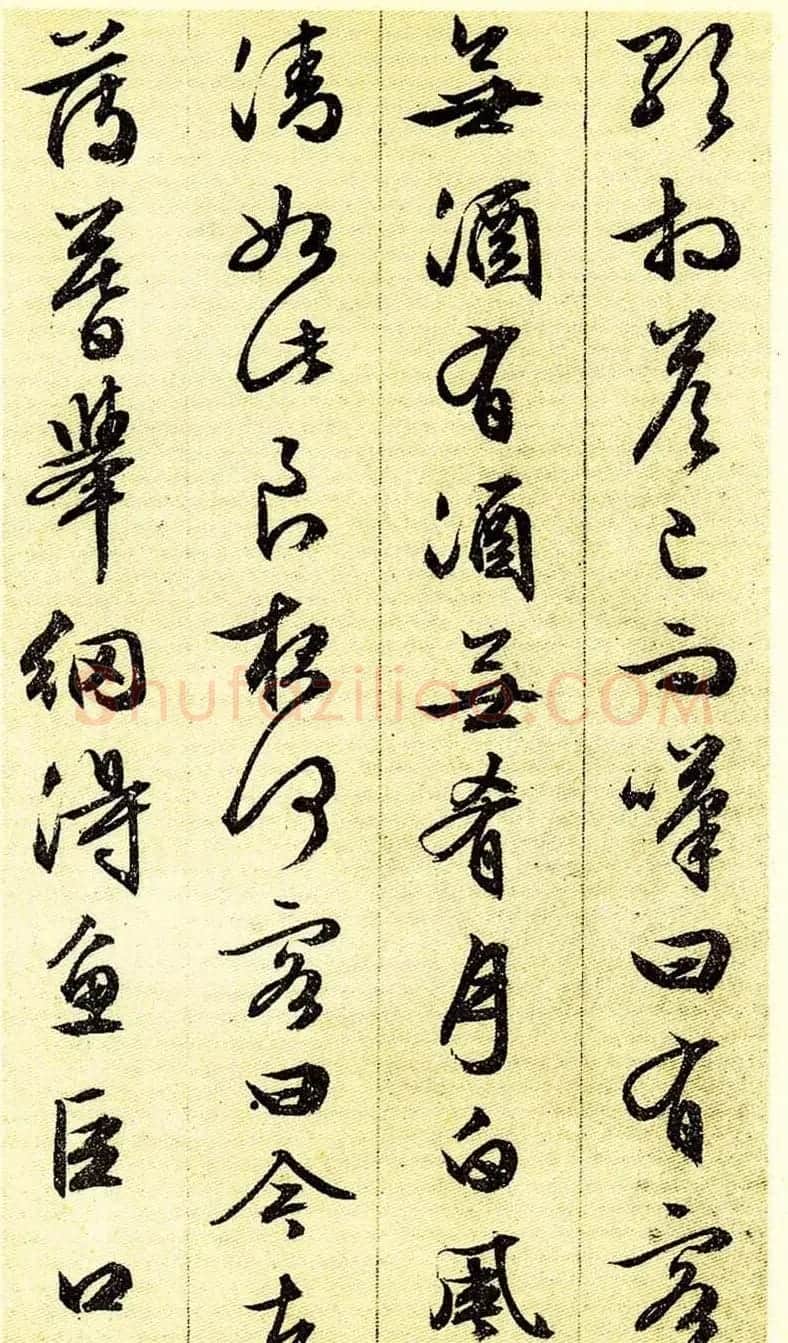 歌相答已而嘆曰有客
無酒有酒無肴月白風
清如此良夜何客曰今者
薄暮舉網得魚巨口
Shufaziliao.COM